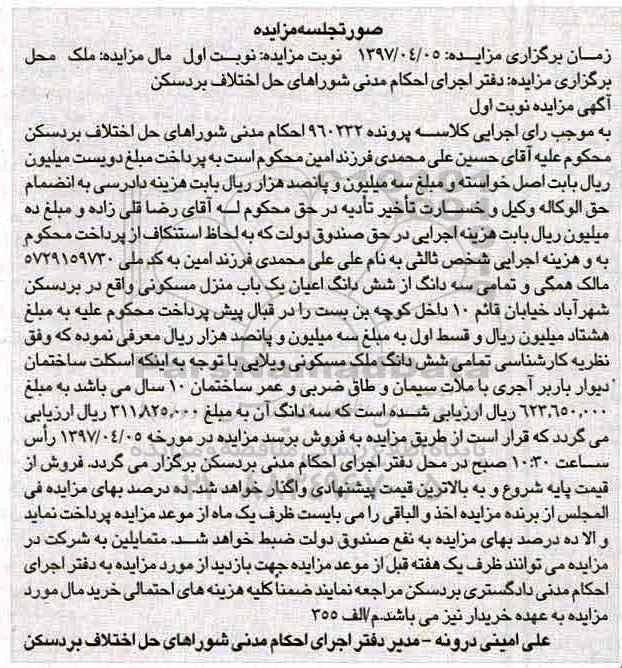 صورتجلسه مزایده
زمان برگزاری مزایده: ۱۳۹۷/۰۴/۰۵ نوبت مزایده: نوبت اول مال مزایده: ملک محل
برگزاری مزایده: دفتر اجرای احکام مدنی شوراهای حل اختلاف بردسکن
آگهی مزایده نوبت اول
به موجب رای اجرایی کلاسه پرونده ۹۶۰۲۳۲ احکام مدنی شوراهای حل اختلاف بردسکن
محکوم علیه آقای حسین علی محمدی فرزند امین محکوم است به پرداخت مبلغ دویست میلیون
ریال بابت اصل خواسته و مبلغ سه میلیون و پانصد هزار ریال بابت هزینه دادرسی به انضمام
حق الوکاله وکیل و خسارت تأخیر تأدیه در حق محکوم له آقای رضا قلی زاده و مبلغ ده
میلیون ریال بابت هزینه اجرایی در حق صندوق دولت که به لحاظ استنکاف از پرداخت محکوم
به و هزینه اجرایی شخص ثالثی به نام علی علی محمدی فرزند امین به کد ملی ۵۷۲۹۱۵۹۷۳۰
مالک همگی و تمامی سه دانگ از شش دانگ اعیان یک باب منزل مسکونی واقع در بردسکن
شهرآباد خیابان قائم ۱۰ داخل کوچه بن بست را در قبال پیش پرداخت محکوم علیه به مبلغ
هشتاد میلیون ریال و قسط اول به مبلغ سه میلیون و پانصد هزار ریال معرفی نموده که وفق
نظریه کارشناسی تمامی شش دانگ ملک مسکونی ویلایی با توجه به اینکه اسکلت ساختمان
دیوار باربر آجری با ملات سیمان و طاق ضربی و عمر ساختمان ۱۰ سال می باشد به مبلغ
۶۲۳,۶۵۰,۰۰۰ ریال ارزیابی شده است که سه دانگ آن به مبلغ ۳۱۱,۸۲۵,۰۰۰ ریال ارزیابی
می گردد که قرار است از طریق مزایده به فروش برسد مزایده در مورخه ۱۳۹۷/۰۴/۰۵ رأس
ساعت ۱۰:۳۰ صبح در محل دفتر اجرای احکام مدنی بردسکن برگزار می گردد. فروش از
قیمت پایه شروع و به بالاترین قیمت پیشنهادی واگذار خواهد شد ده درصد بهای مزایده فی
المجلس از برنده مزایده اخذ و الباقی را می بایست ظرف یک ماه از موعد مزایده پرداخت نماید
و الا ده درصد بهای مزایده به نفع صندوق دولت ضبط خواهد شد. متمایلین به شرکت در
مزایده می توانند ظرف یک هفته قبل از موعد مزایده جهت بازدید از مورد مزایده به دفتر اجرای
احکام مدنی دادگستری بردسکن مراجعه نمایند ضمناً کلیه هزینه های احتمالی خرید مال مورد
مزایده به عهده خریدار نیز می باشد.م/الف ۳۵۵
علی امینی درونه - مدیر دفتر اجرای احکام مدنی شوراهای حل اختلاف بردسکن